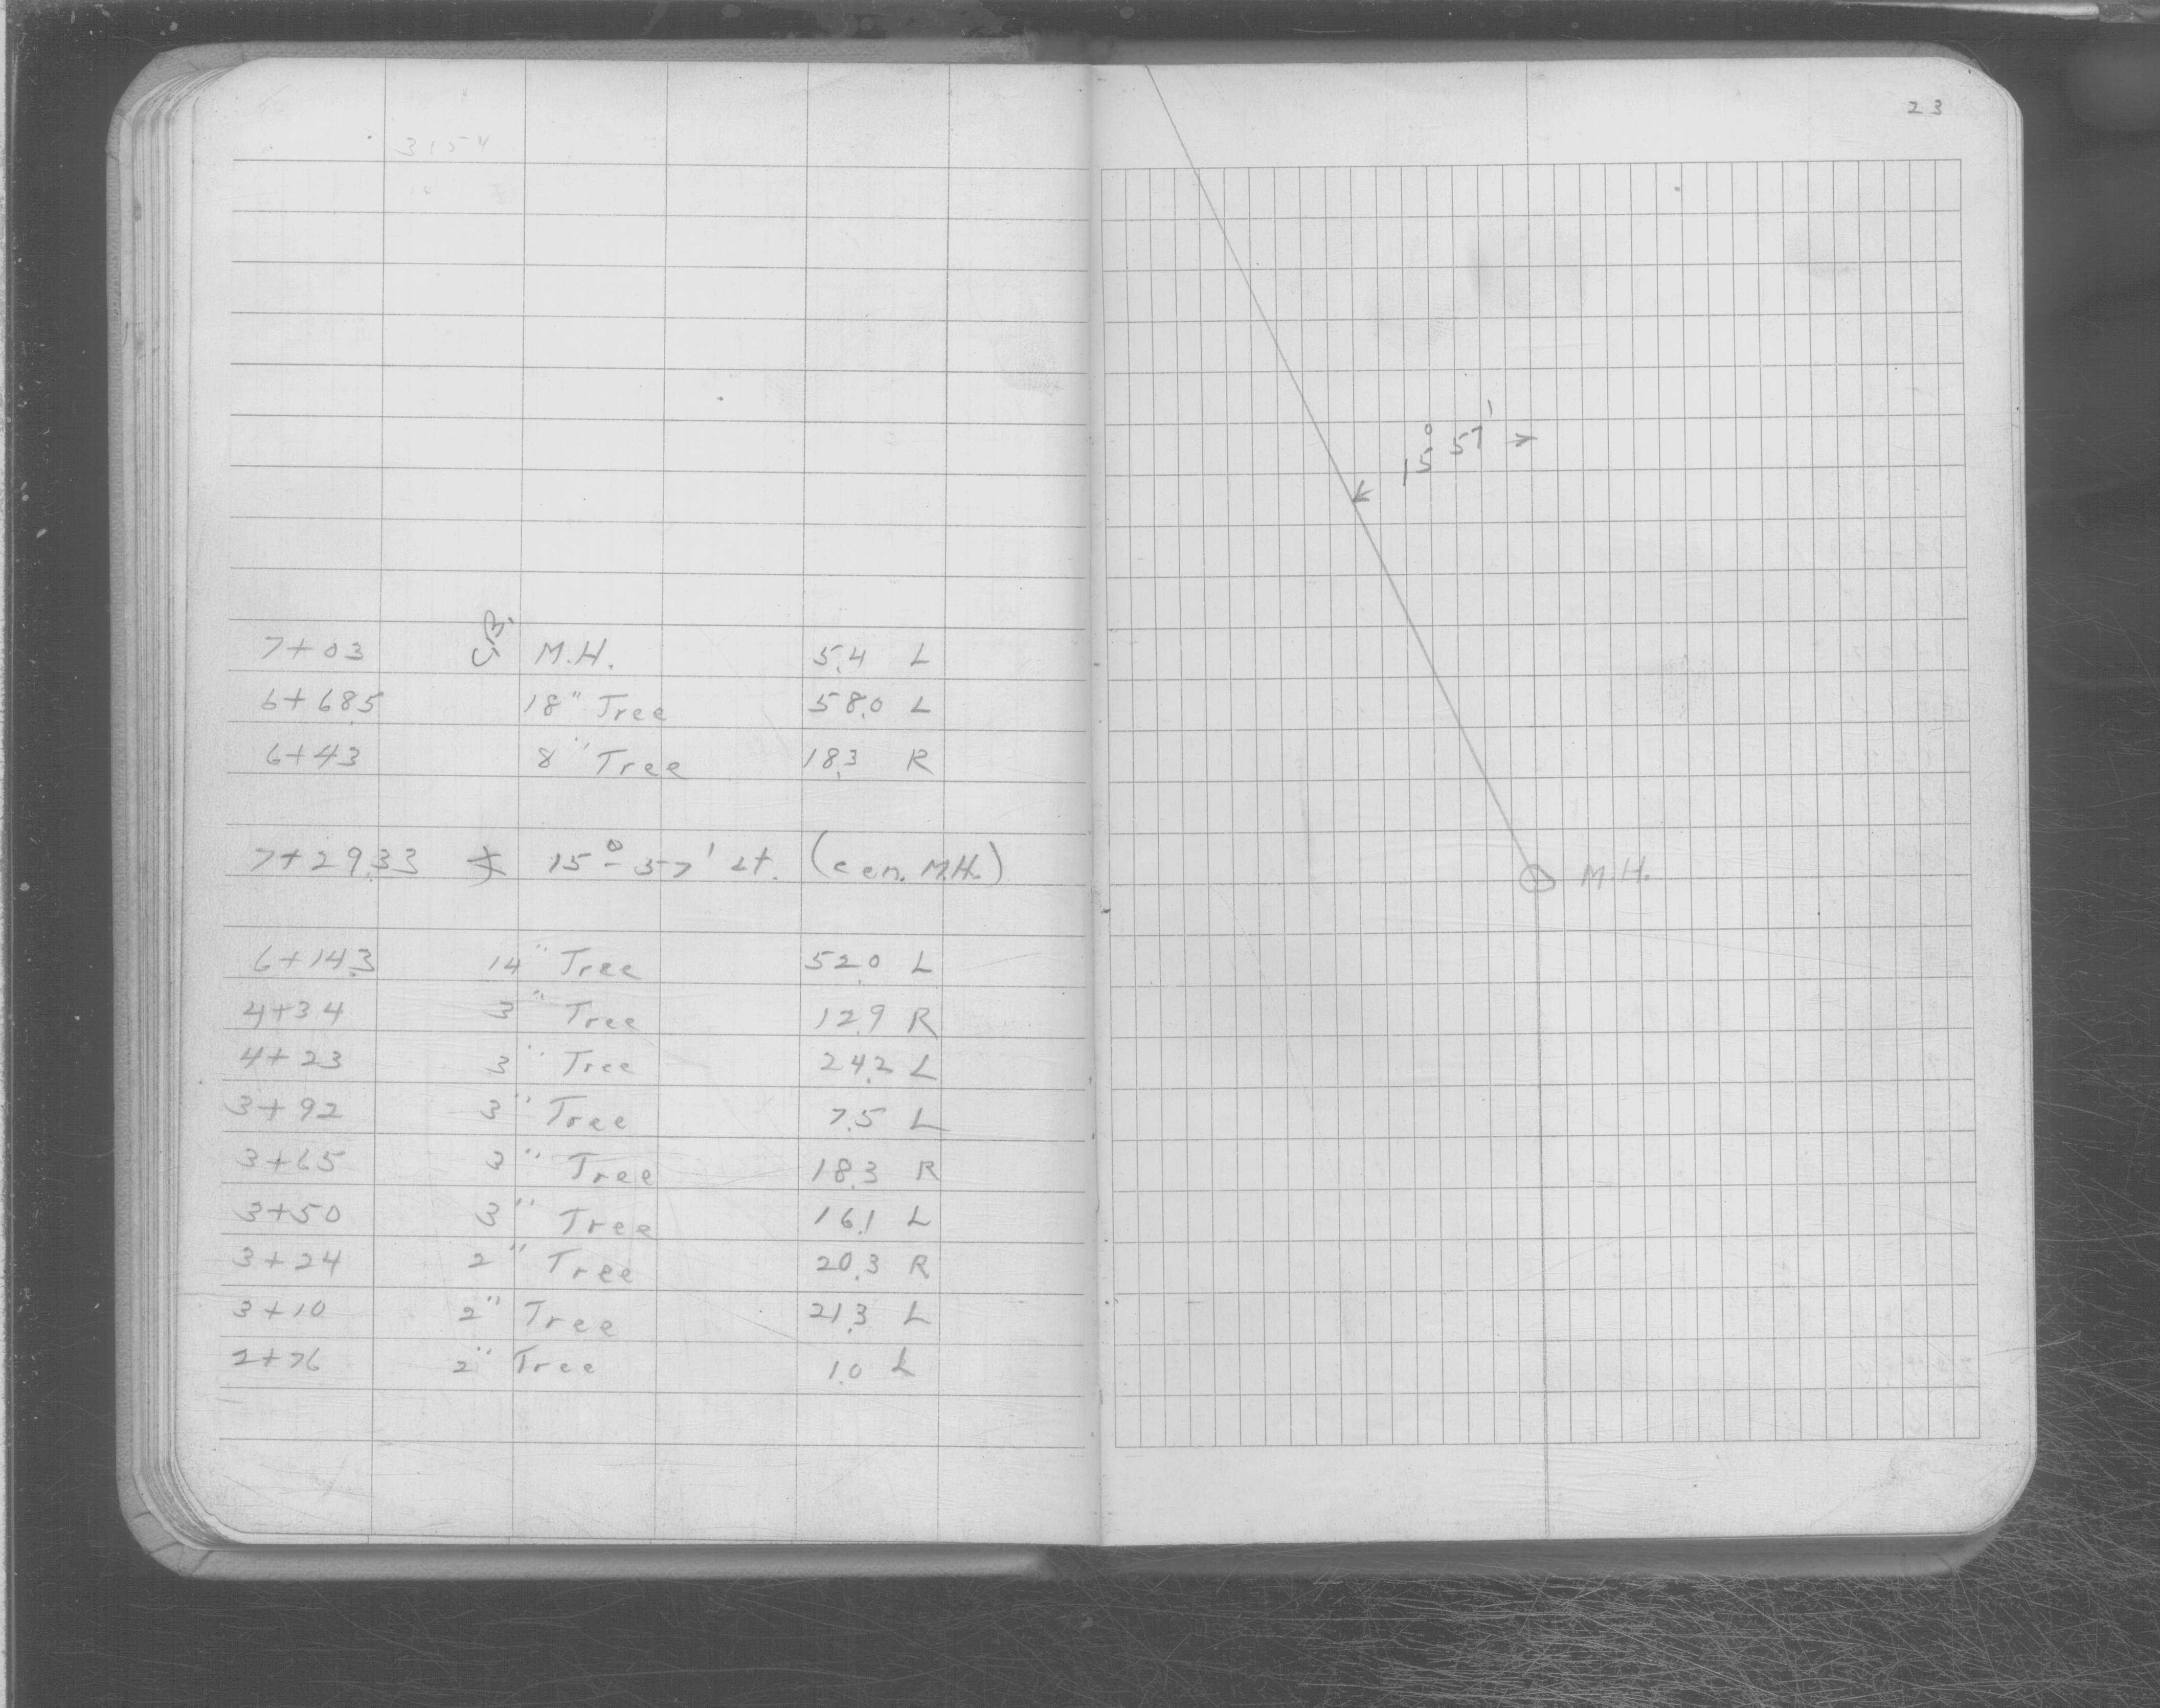 23
7+03 M.H. 5.4 L
6+68.5 18" Tree 58.0 L
6+43 8" Tree 18.3 R
7+29.33 15°-57' Lt. (cen. M.H.)
6+14.3 14" Tree 52.0 L
4+34 3" Tree 12.9 R
4+23 3" Tree 24.2 L
3+92 3" Tree 7.5 L
3+65 3" Tree 18.3 R
3+50 3" Tree 16.1 L
3+24 2" Tree 20.3 R
3+10 2" Tree 21.3 L
2+76 2" Tree 1.0 L
15° 57'
M.H.